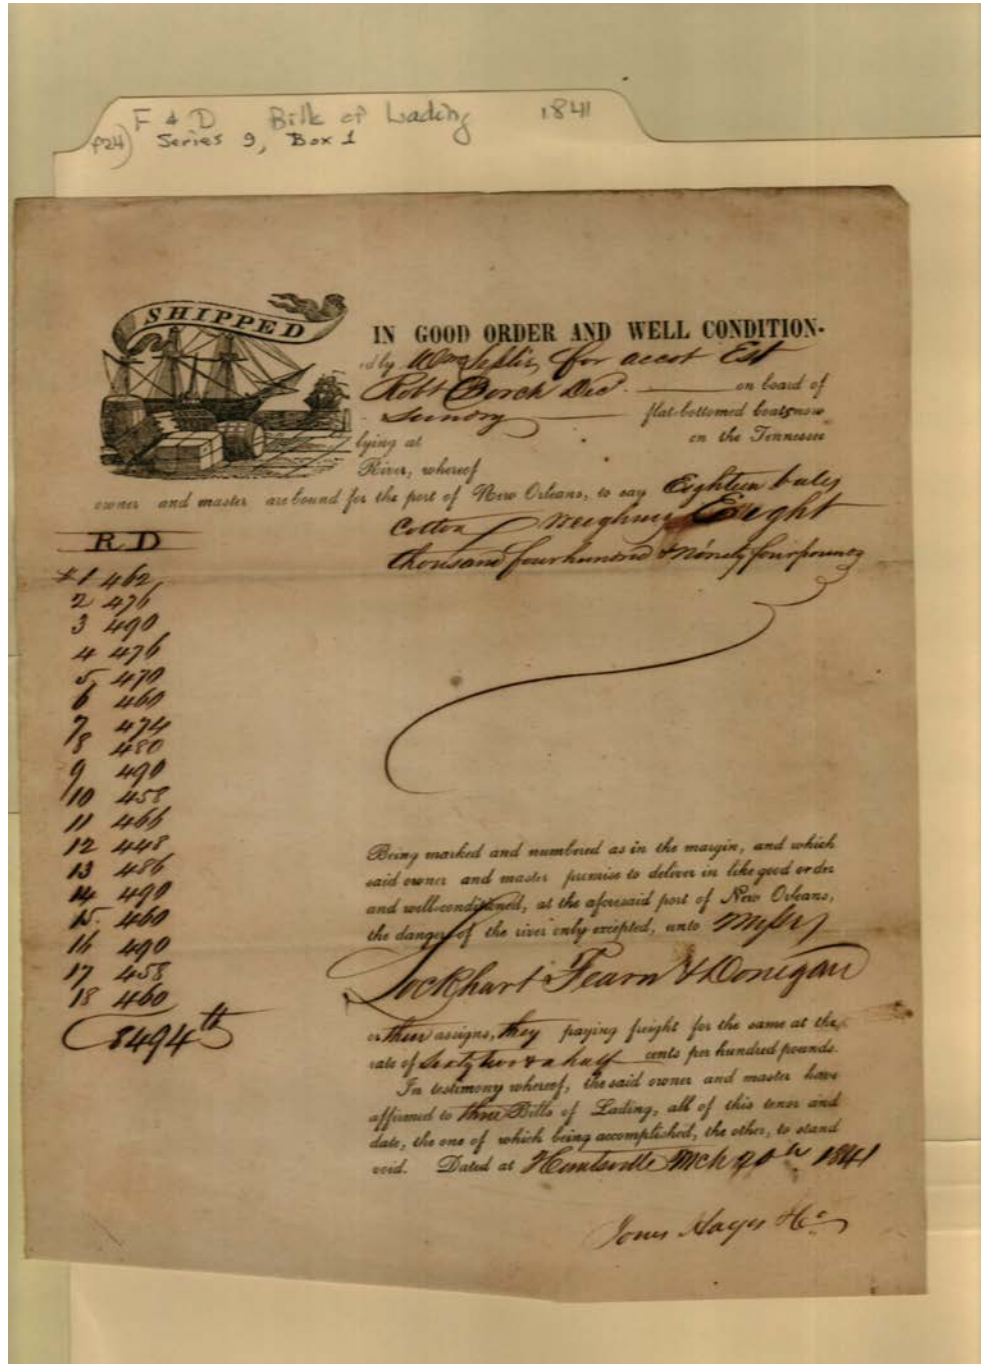 F & D Bills of Lading 1841
p24) Series 9, Box 1
SHIPPED
IN GOOD ORDER AND WELL CONDITION-
ed by Wm for accot Est
Robt Dec on board of
Sundry flat-bottomed boats now
lying at on the Tennessee
River, whereof
owner and master are bound for the port of New Orleans, to say Eighteen bales
Cotton weighing Eight
thousand four hundred & Ninety four pounds
R D
#1 462
2 476
3 490
4 476
5 470
6 460
7 474
8 480
9 490
10 458
11 466
12 448
13 486
14 490
15 460
16 490
17 458
18 460
8494 lb
Being marked and numbered as in the margin, and which
said owner and master promise to deliver in like good order
and well-conditioned, at the aforesaid port of New Orleans,
the danger of the river only excepted, unto Messrs
Lockhart Fearn & Donegan
or their assigns, they paying freight for the same at the
rate of Sixty two & a half cents per hundred pounds.
In testimony whereof, the said owner and master have
affirmed to three Bills of Lading, all of this tenor and
date, the one of which being accomplished, the other, to stand
void. Dated at Huntsville Mch 1841
Hayes